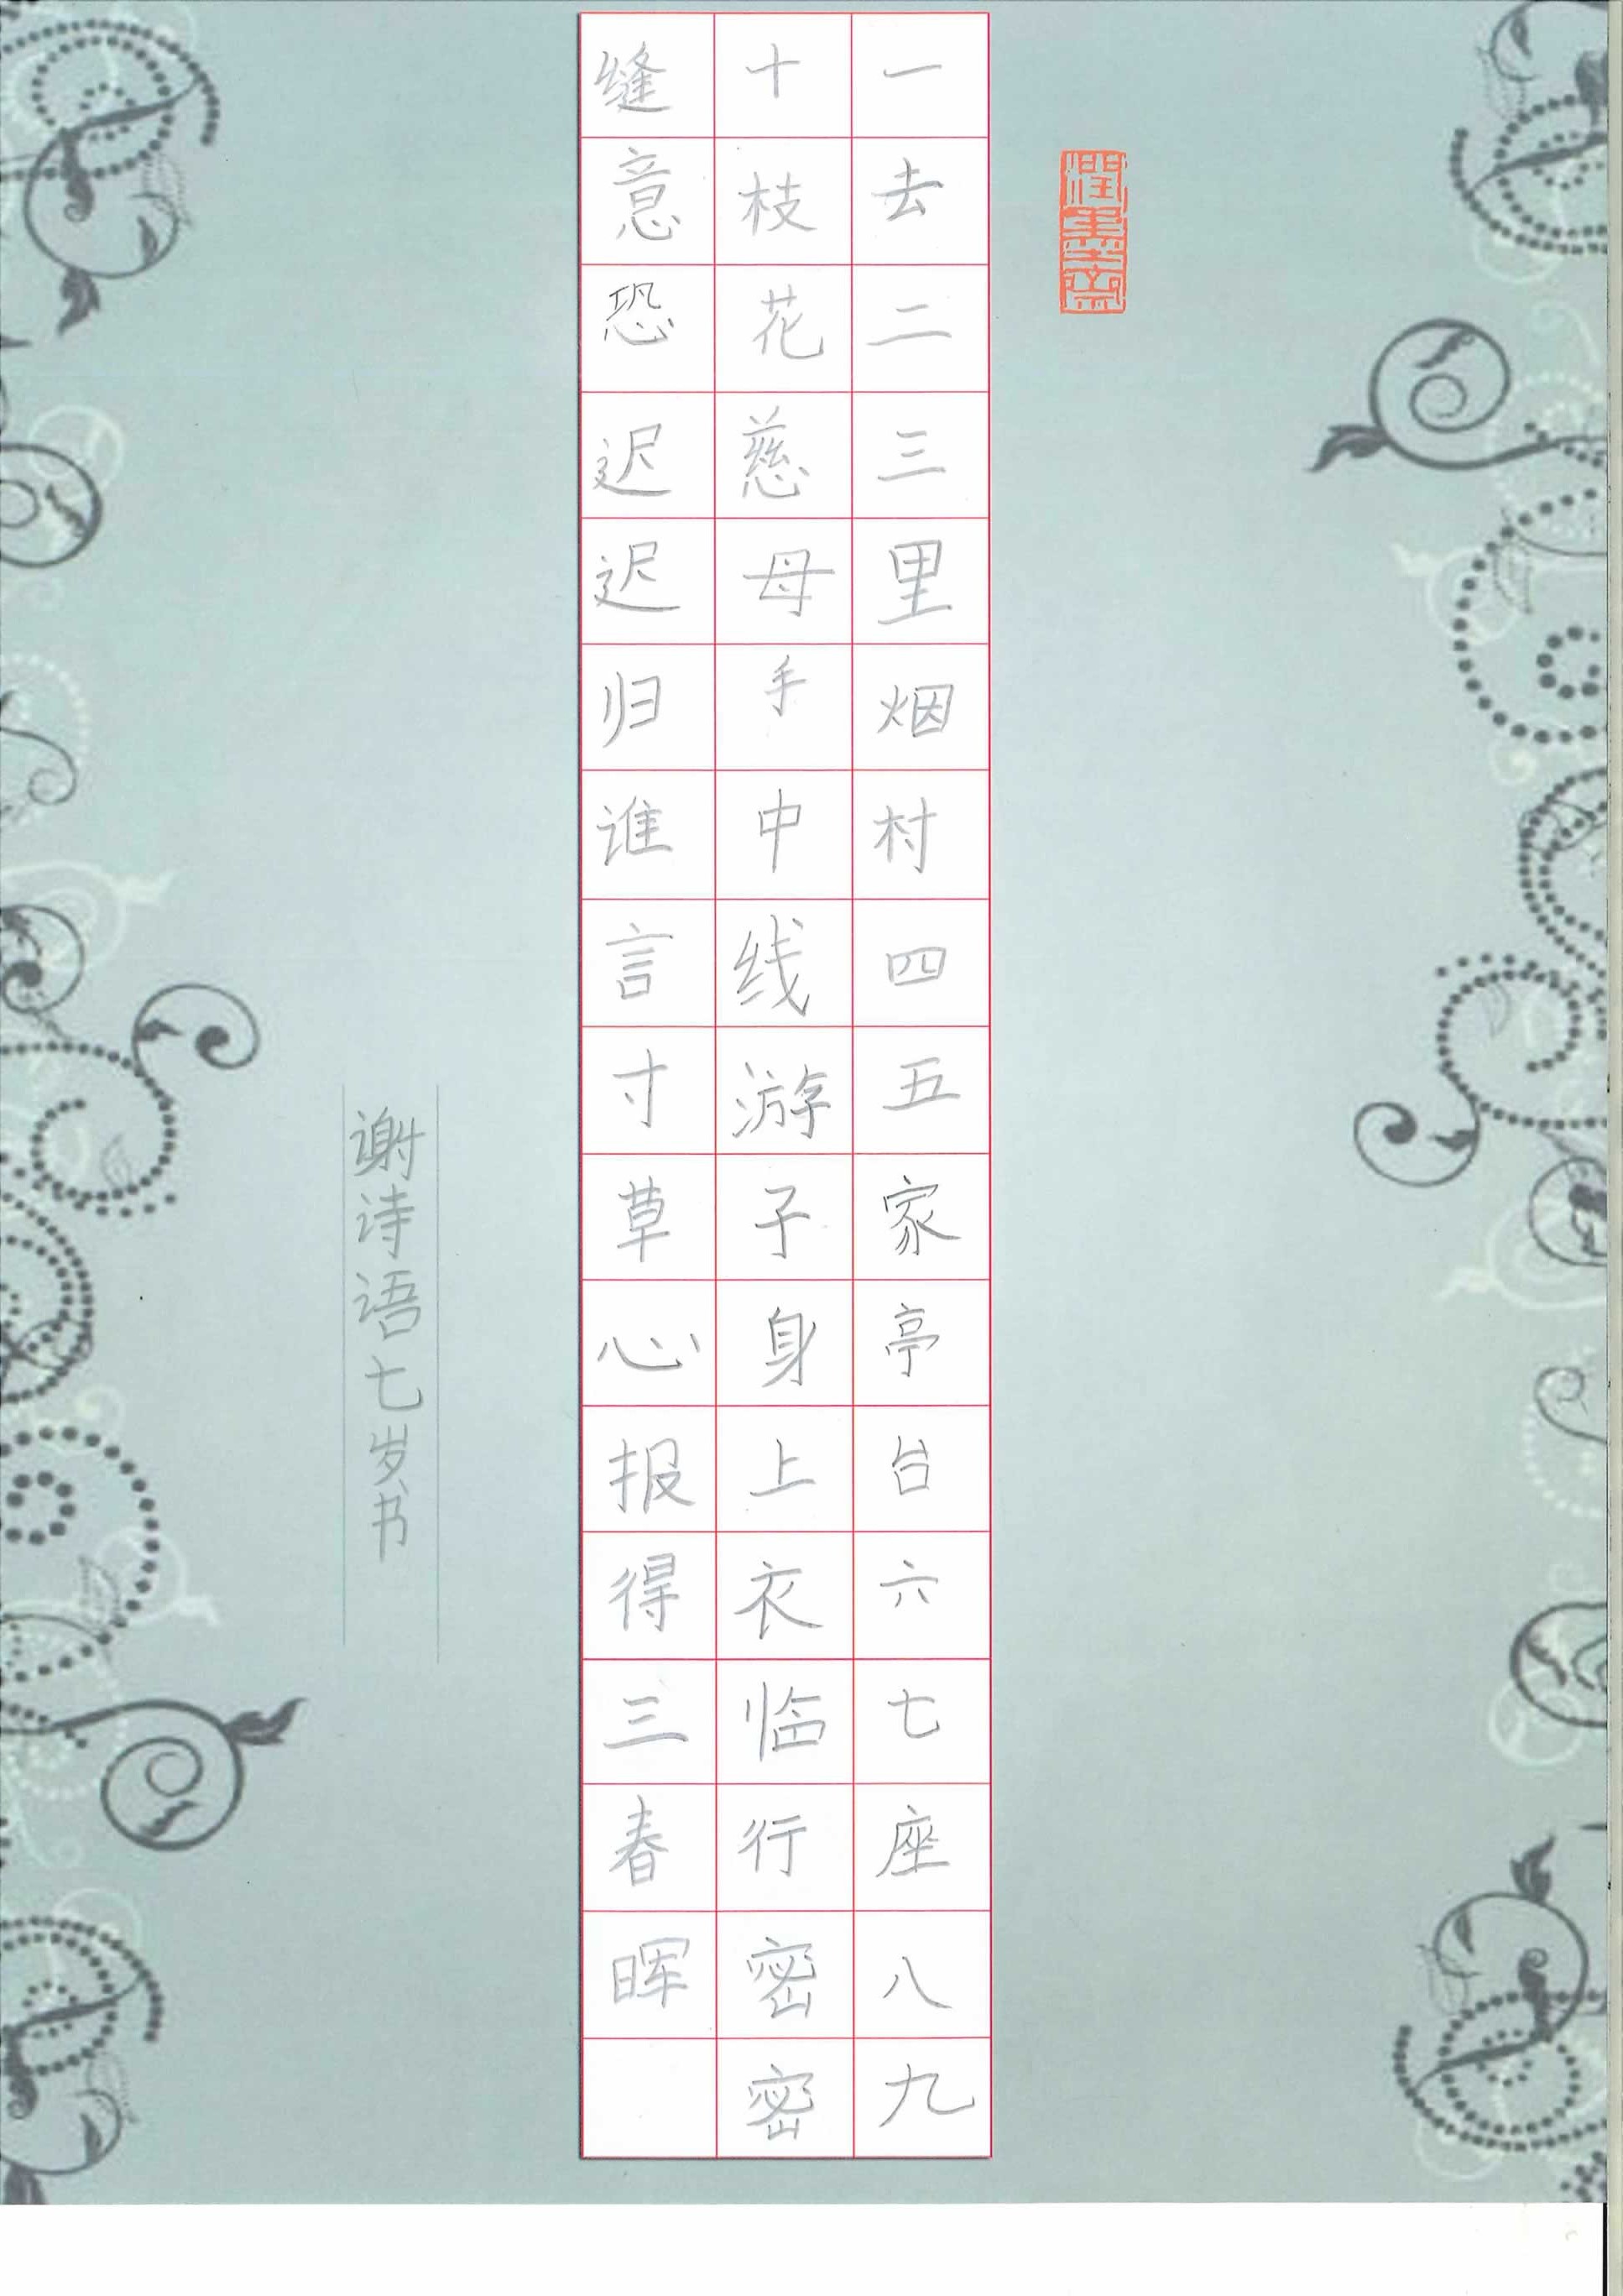 潤墨斋
一去二三里烟村四五家亭台六七座八九
十枝花慈母手中线游子身上衣临行密密
缝意恐迟迟归谁言寸草心报得三春晖
谢诗语七岁书